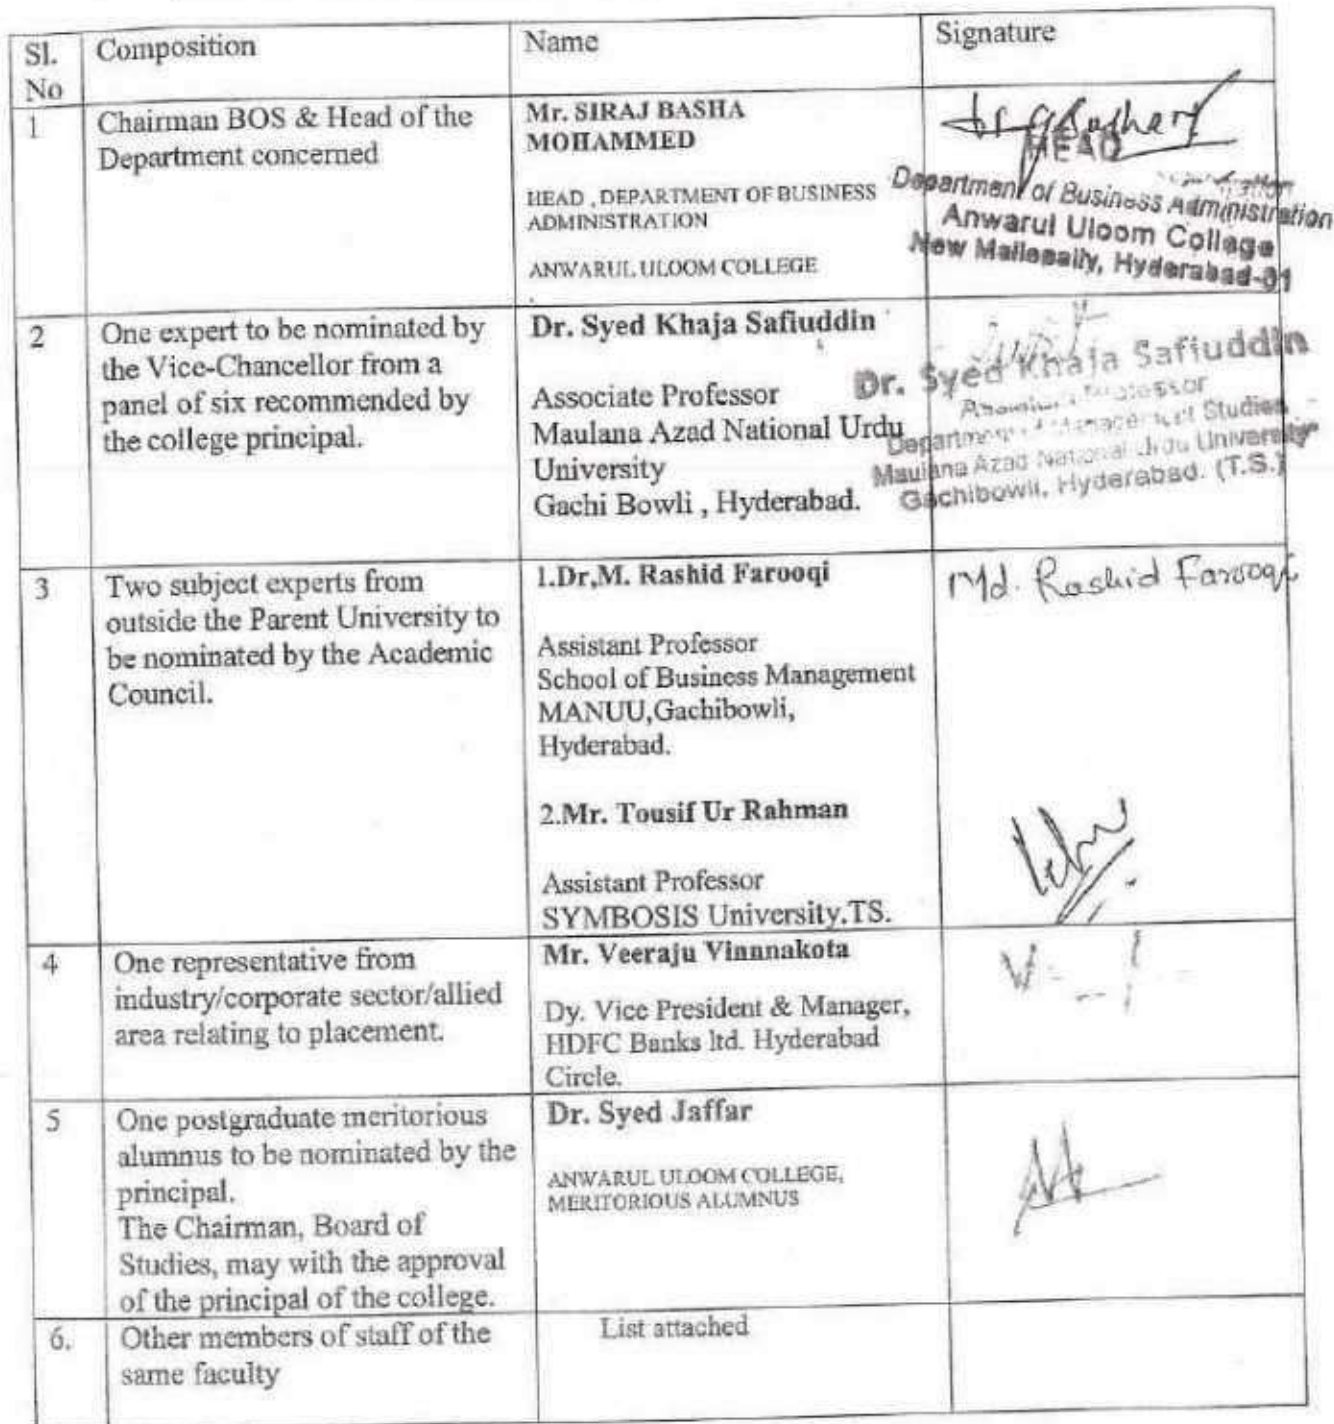 Sl. No
Composition
Name
Signature
1
Chairman BOS & Head of the
Department concerned
Mr. SIRAJ BASHA
MOHAMMED
HEAD , DEPARTMENT OF BUSINESS
ADMINISTRATION
ANWARUL ULOOM COLLEGE
HEAD
Department of Business Administration
Anwarul Uloom College
New Mallepally, Hyderabad-01
2
One expert to be nominated by
the Vice-Chancellor from a
panel of six recommended by
the college principal.
Dr. Syed Khaja Safiuddin
Associate Professor
Maulana Azad National Urdu
University
Gachi Bowli , Hyderabad.
Dr. Syed Khaja Safiuddin
Professor
Department of Management Studies
Maulana Azad National Urdu University
Gachibowli, Hyderabad. (T.S.)
3
Two subject experts from
outside the Parent University to
be nominated by the Academic
Council.
1.Dr,M. Rashid Farooqi
Assistant Professor
School of Business Management
MANUU,Gachibowli,
Hyderabad.
Md. Rashid Farooqi
2.Mr. Tousif Ur Rahman
Assistant Professor
SYMBOSIS University.TS.
4
One representative from
industry/corporate sector/allied
area relating to placement.
Mr. Veeraju Vinnnakota
Dy. Vice President & Manager,
HDFC Banks ltd. Hyderabad
Circle.
5
One postgraduate meritorious
alumnus to be nominated by the
principal.
The Chairman, Board of
Studies, may with the approval
of the principal of the college.
Dr. Syed Jaffar
ANWARUL ULOOM COLLEGE,
MERITORIOUS ALUMNUS
6.
Other members of staff of the
same faculty
List attached